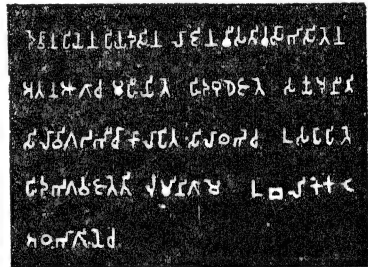 𑀤𑁂𑀯𑀸𑀦𑀧𑀺𑀬𑁂𑀦 𑀧𑀺𑀬𑀤𑀲𑀺𑀦 𑀮𑀸𑀚𑀺𑀦 𑀯𑀻𑀲𑀢𑀺𑀯𑀲𑀸𑀪𑀺𑀲𑀺𑀢𑁂𑀦
𑀅𑀢𑀦 𑀆𑀕𑀸𑀘 𑀫𑀳𑀻𑀬𑀺𑀢𑁂 𑀳𑀺𑀤 𑀩𑀼𑀥𑁂 𑀚𑀸𑀢𑁂 𑀲𑀓𑁆𑀬𑀫𑀼𑀦𑀺 𑀢𑀺
𑀲𑀺𑀮𑀸 𑀯𑀺𑀕𑀟𑀪𑀺 𑀘𑀸 𑀓𑀸𑀮𑀸𑀧𑀺𑀢 𑀲𑀺𑀮𑀸𑀣𑀪𑁂 𑀘 𑀉𑀲𑀧𑀸𑀧𑀺𑀢𑁂
𑀳𑀺𑀤 𑀪𑀕𑀯𑀁 𑀚𑀸𑀢𑁂 𑀢𑀺 𑀮𑀼𑀁𑀫𑀺𑀦𑀺 𑀕𑀸𑀫𑁂 𑀉𑀩𑀮𑀺𑀓𑁂 𑀓𑀝𑁂
𑀅𑀞𑀪𑀸𑀕𑀺𑀬𑁂 𑀘